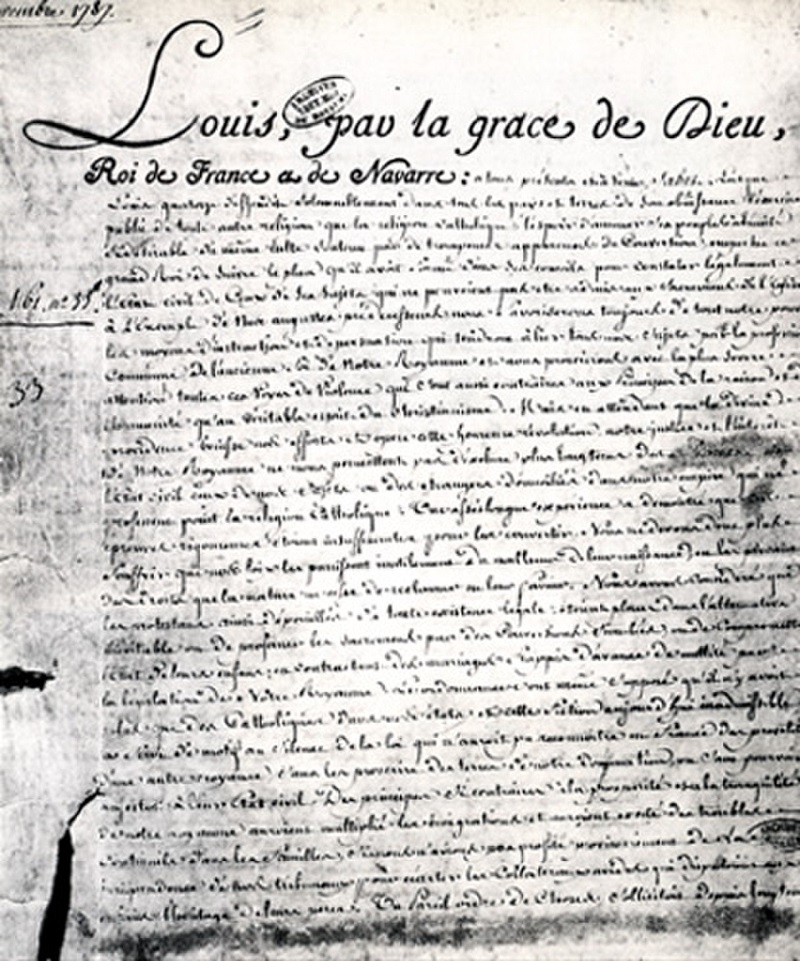 1787.
Louis, par la grace de Dieu,
Roi de France et de Navarre: a tous présents et à venir, Salut. Lorsque
Louis quatorze deffendit solemnellement dans tous les pays et terres de son obéissance l'exercice
public de toute autre religion que la religion Catholique, l'espoir d'amener ses peuples à l'unité
désirable du même culte, soutenu par de trompeuses apparences de Conversions, empêcha ce
grand Roi de suivre le plan qu'il avoit formé dans ses conseils pour constater légalement
161. n° 35. l'état civil de Ceux de ses sujets qui ne pouvoient pas être admis aux Sacrements de l'Eglise
à l'Exemple de Nos augustes prédécesseurs nous favoriserons toujours de tout notre pouvoir
les moyens d'instruction et de persuasion qui tendront à lier tous nos sujets par la profession
33
Commune de l'ancienne foi de Notre Royaume et nous proscrirons avec la plus sévère
attention toutes ces Voyes de Violence qui sont aussi contraires aux principes de la raison et de
l'humanité qu'au véritable esprit du Christianisme. Mais en attendant que la divine
providence bénisse nos efforts et opère cette heureuse révolution, notre justice et l'intérêt
de Notre Royaume ne nous permettent pas d'exclure plus longtems des
l'état civil ceux de nos Sujets ou des étrangers domiciliés dans notre empire qui ne
professent point la religion Catholique. Une assés longue expérience a démontré que ces
épreuves rigoureuses étoient insuffisantes pour les convertir. Nous ne devons donc plus
Souffrir que nos loix les punissent inutilement du malheur de leur naissance en les privant
des droits que la nature ne cesse de réclamer en leur faveur. Nous avons considéré que
les protestans ainsi dépouillés de toute existence légale étoient placés dans l'alternative
inévitable ou de profaner les Sacrements par des Conversions simulées, ou de Compromettre
l'état de leurs enfans, en contractant des mariages frappés d'avance de nullité par
la législation de Notre Royaume. Les ordonnances ont même supposé qu'il n'y avoit
plus que des Catholiques dans nos états et cette fiction aujourd'hui inadmissible
a servi de motif au silence de la loi qui n'auroit pu reconnoitre en France des prosélites
d'une autre croyance, sans les proscrire des terres de notre domination, ou sans pourvoir
aussitot à leur Etat civil. Des principes si contraires à la prospérité et à la tranquillité
de notre royaume auroient multiplié les émigrations et auroient excité des troubles
continuels dans les familles, si nous n'avions pas profité provisoirement de la
jurisprudence de nos tribunaux pour écarter les Collatéraux avides qui disputoient aux
enfans l'héritage de leurs pères. Un Pareil ordre de Choses sollicitoit depuis longtems